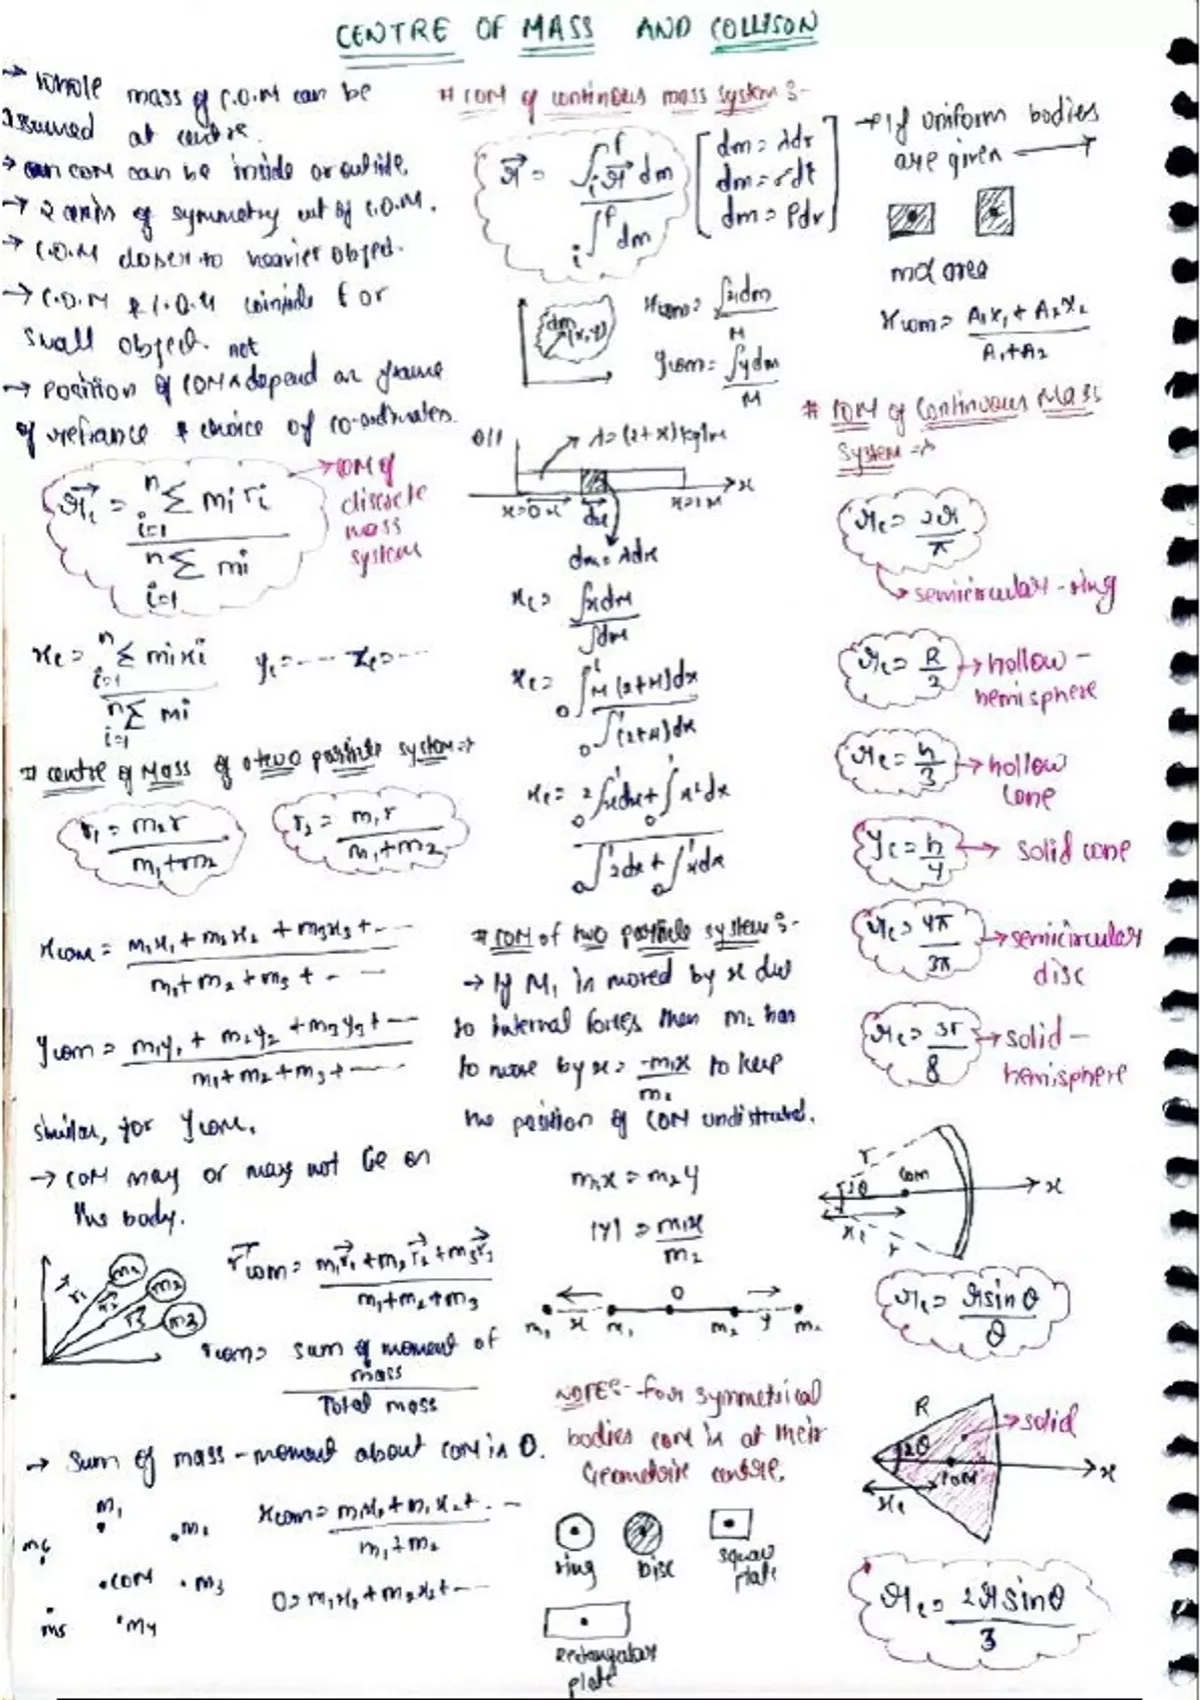 CENTRE OF MASS AND COLLISON
→ Whole mass of C.O.M can be
assumed at centre.
→ COM can be inside or outside.
→ 2 axis of symmetry cut of C.O.M.
→ C.O.M closer to heavier object.
→ C.O.M & C.O.G coinside for
small object.
→ Position of COM not depend on frame
of refrance & choice of co-ordinates.
r⃗c = nΣi=1 mi ri / nΣi=1 mi
→ COM of
discrete
mass
system
xc = nΣi=1 mixi / nΣi=1 mi yc = ---- zc = ---
# Centre of Mass of a two particle system →
r1 = m2r / m1+m2
r2 = m1r / m1+m2
xcom = m1x1 + m2x2 + m3x3 + --- / m1+m2+m3+ - --
ycom = m1y1 + m2y2 + m3y3 + --- / m1+m2+m3+ ----
similar, for ycom.
→ COM may or may not be on
this body.
r⃗1 r⃗2 r⃗3 m1 m2 m3
r⃗com = m1r⃗1 + m2r⃗2 + m3r⃗3 / m1+m2+m3
rcom = sum of moment of
mass
Total mass
→ Sum of mass-moment about COM is 0.
m1
m2
m6
COM
m3
m5
m4
xcom = m1x1 + m2x2 + . -- / m1+m2
0 = m1x1 + m2x2 + ---
# COM of continous mass system :-
r⃗ = i∫f r⃗ dm / i∫f dm
dm = λdr
dm = σdt
dm = ρdv
dm (x,y)
xcom = ∫xdm / M
ycom = ∫ydm / M
λ = (2+x) kg/m
x=0 dx x=1M x
dm = λdx
xc = ∫xdm / ∫dm
xc = 0∫1 x(2+x)dx / 0∫1 (2+x)dx
xc = 2 0∫1 xdx + 0∫1 x²dx / 0∫1 2dx + 0∫1 xdx
# COM of two particle system :-
→ If M1 is moved by x due
to internal forces then m2 has
to move by x = -m1x / m2 to keep
the position of COM undistrubed.
m1x = m2y
|y| = m1x / m2
O
m1 x m1 m2 y m2
NOTE:- for symmetrical
bodies COM is at their
Geometric centre.
ring
Disc
squar
plate
Rectangular
plate
→ If uniform bodies
are given →
m α area
xcom = A1x1 + A2x2 / A1+A2
# COM of Continuous Mass
System →
rc = 2r / π
→ semicircular-ring
rc = R / 2 → hollow-
hemisphere
rc = h / 3 → hollow
cone
yc = h / 4 → solid cone
rc = 4π / 3π → semicircular
disc
rc = 3r / 8 → solid-
hemisphere
r 2θ com x
xc r
rc = r sin θ / θ
R → solid
2θ COM x
xc
rc = 2r sin θ / 3